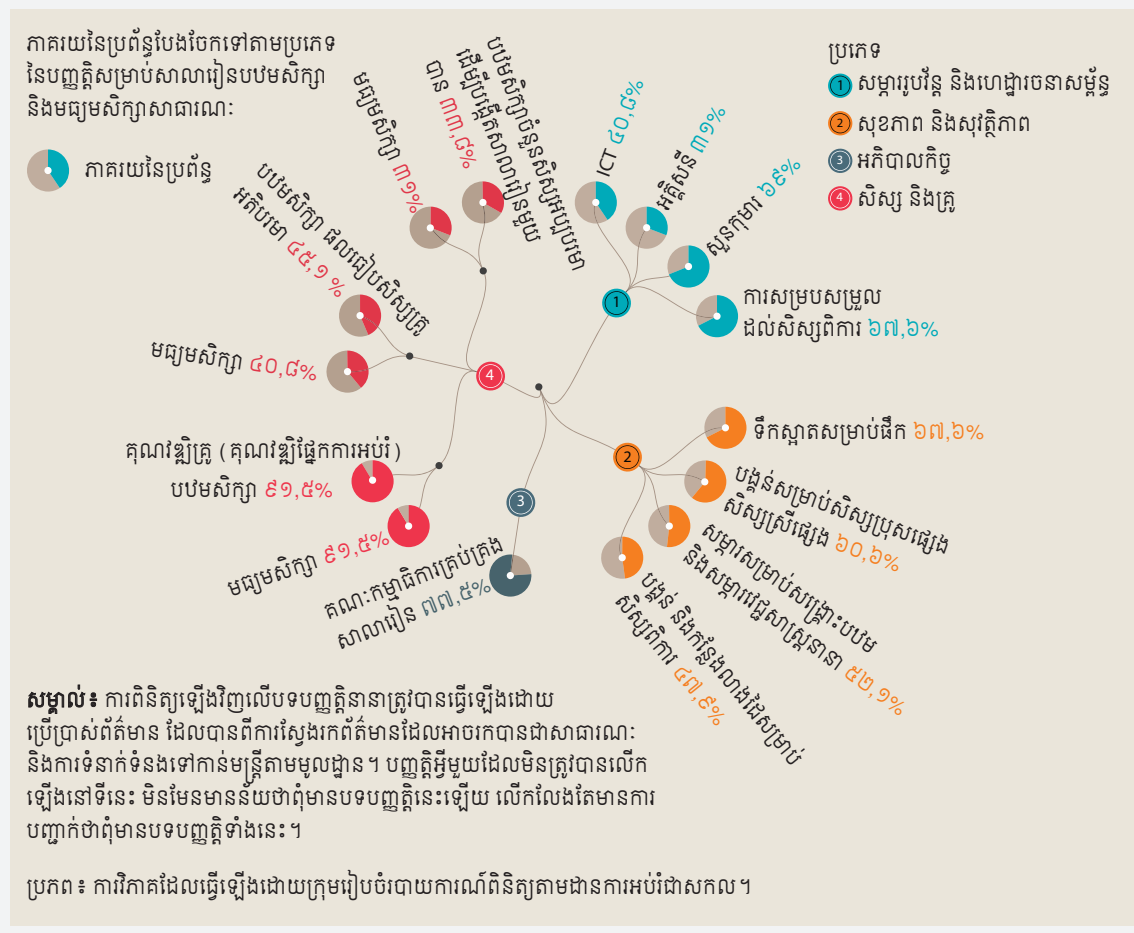 ភាគរយនៃប្រព័ន្ធបែងចែកទៅតាមប្រភេទ
នៃបញ្ញត្តិសម្រាប់សាលារៀនបឋមសិក្សា
និងមធ្យមសិក្សាសាធារណៈ
ភាគរយនៃប្រព័ន្ធ
ប្រភេទ
1 សម្ភាររូបវ័ន្ត និងហេដ្ឋារចនាសម្ព័ន្ធ
2 សុខភាព និងសុវត្ថិភាព
3 អភិបាលកិច្ច
4 សិស្ស និងគ្រូ
បឋមសិក្សាចំនួនសិស្សអប្បបរមា
ដើម្បីបង្កើតសាលារៀនមួយ
បាន ៣៣,៨%
មធ្យមសិក្សា ៣១%
បឋមសិក្សា ផលធៀបសិស្សគ្រូ
អតិបរមា ៤៥,១%
មធ្យមសិក្សា ៤០,៨%
គុណវឌ្ឍិគ្រូ (គុណវឌ្ឍិផ្នែកការអប់រំ)
បឋមសិក្សា ៩១,៥%
មធ្យមសិក្សា ៩១,៥%
គណៈកម្មាធិការគ្រប់គ្រង
សាលារៀន ៧៧,៥%
ICT ៤០,៨%
អគ្គិសនី ៣១%
សួនកុមារ ៦៩%
ការសម្របសម្រួល
ដល់សិស្សពិការ ៦៧,៦%
ទឹកស្អាតសម្រាប់ផឹក ៦៧,៦%
បង្គន់សម្រាប់សិស្សប្រុសផ្សេង
សិស្សស្រីផ្សេង ៦០,៦%
សម្ភារសម្រាប់សង្គ្រោះបឋម
និងសម្ភារវេជ្ជសាស្ត្រនានា ៥២,១%
បង្គន់ និងកន្លែងលាងដៃសម្រាប់
សិស្សពិការ ៤៧,៩%
1
2
3
4
សម្គាល់៖ ការពិនិត្យឡើងវិញលើបទបញ្ញត្តិនានាត្រូវបានធ្វើឡើងដោយ
ប្រើប្រាស់ព័ត៌មាន ដែលបានពីការស្វែងរកព័ត៌មានដែលអាចរកបានជាសាធារណៈ
និងការទំនាក់ទំនងទៅកាន់មន្ត្រីតាមមូលដ្ឋាន។ បញ្ញត្តិអ្វីមួយដែលមិនត្រូវបានលើក
ឡើងនៅទីនេះ មិនមែនមានន័យថាពុំមានបទបញ្ញត្តិនេះឡើយ លើកលែងតែមានការ
បញ្ជាក់ថាពុំមានបទបញ្ញត្តិទាំងនេះ។
ប្រភព៖ ការវិភាគដែលធ្វើឡើងដោយក្រុមរៀបចំរបាយការណ៍ពិនិត្យតាមដានការអប់រំជាសកល។